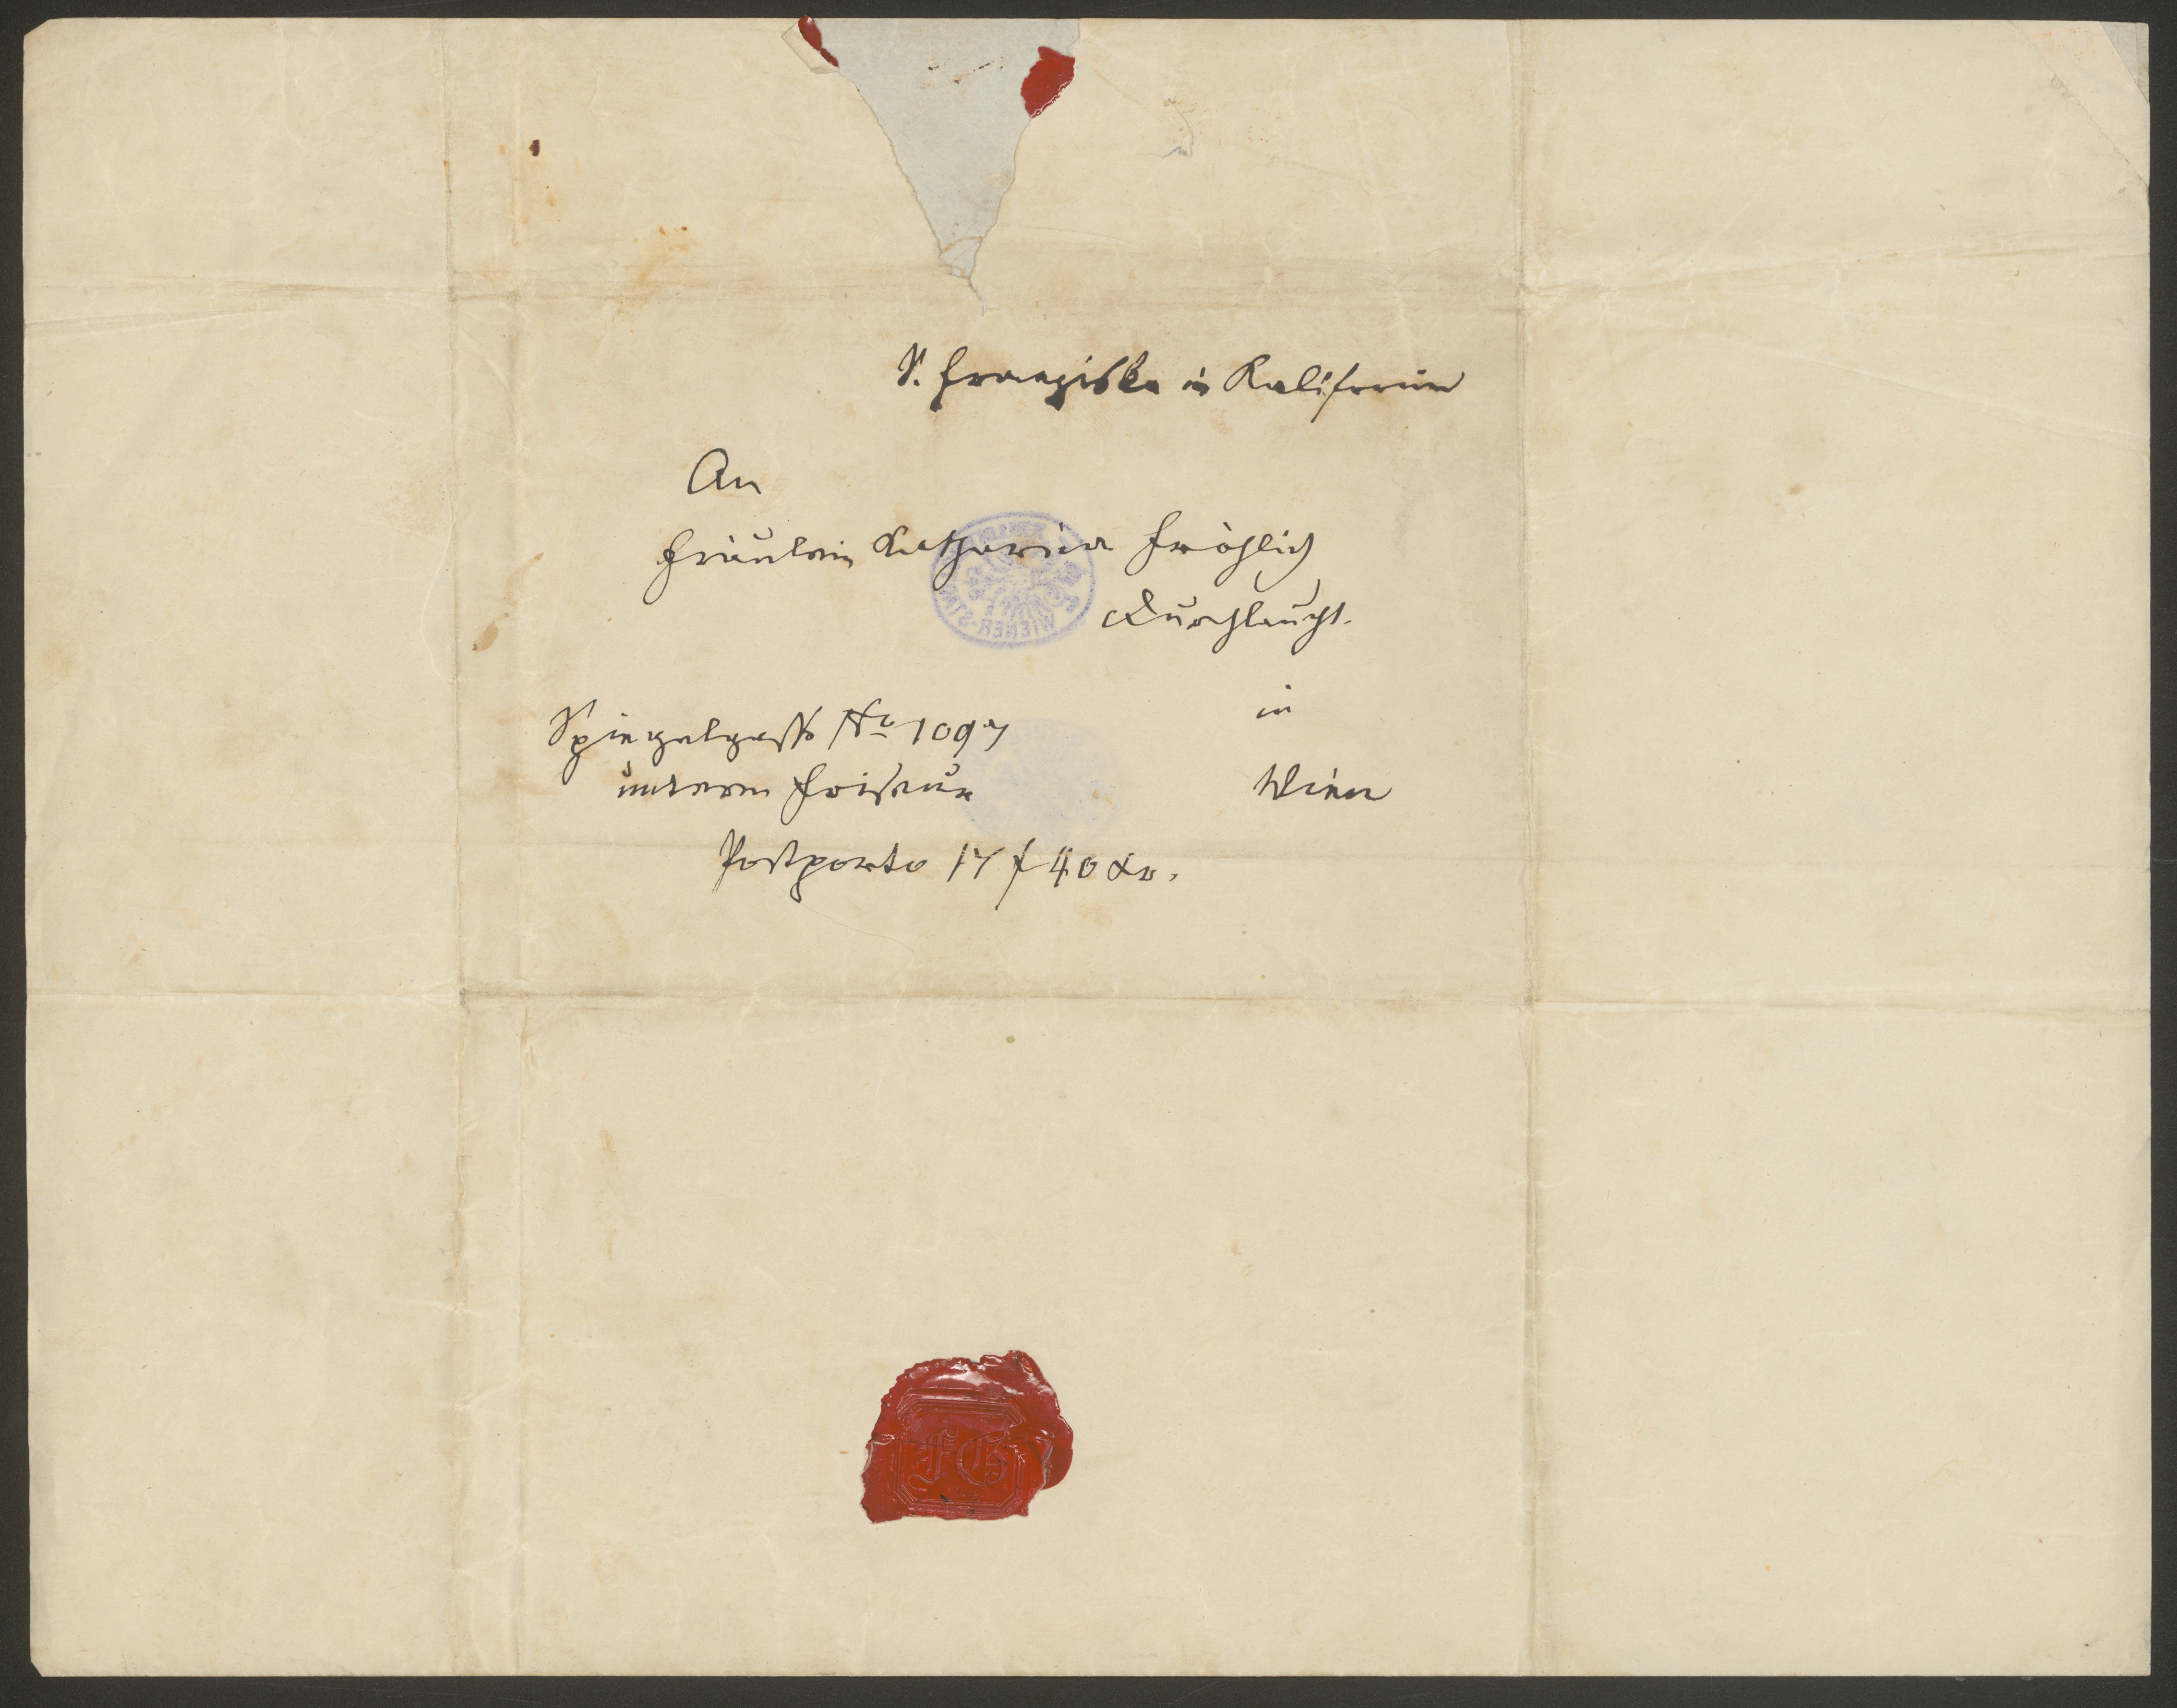 S. Franziska in Kalifornien
An
Fräulein Katharina Fröhlich
Durchlaucht.
in
Spiegelgasse No 1097
unterm Friseur
Wien
Postporto 17 f 40 xr.
WIENER-STA
FG